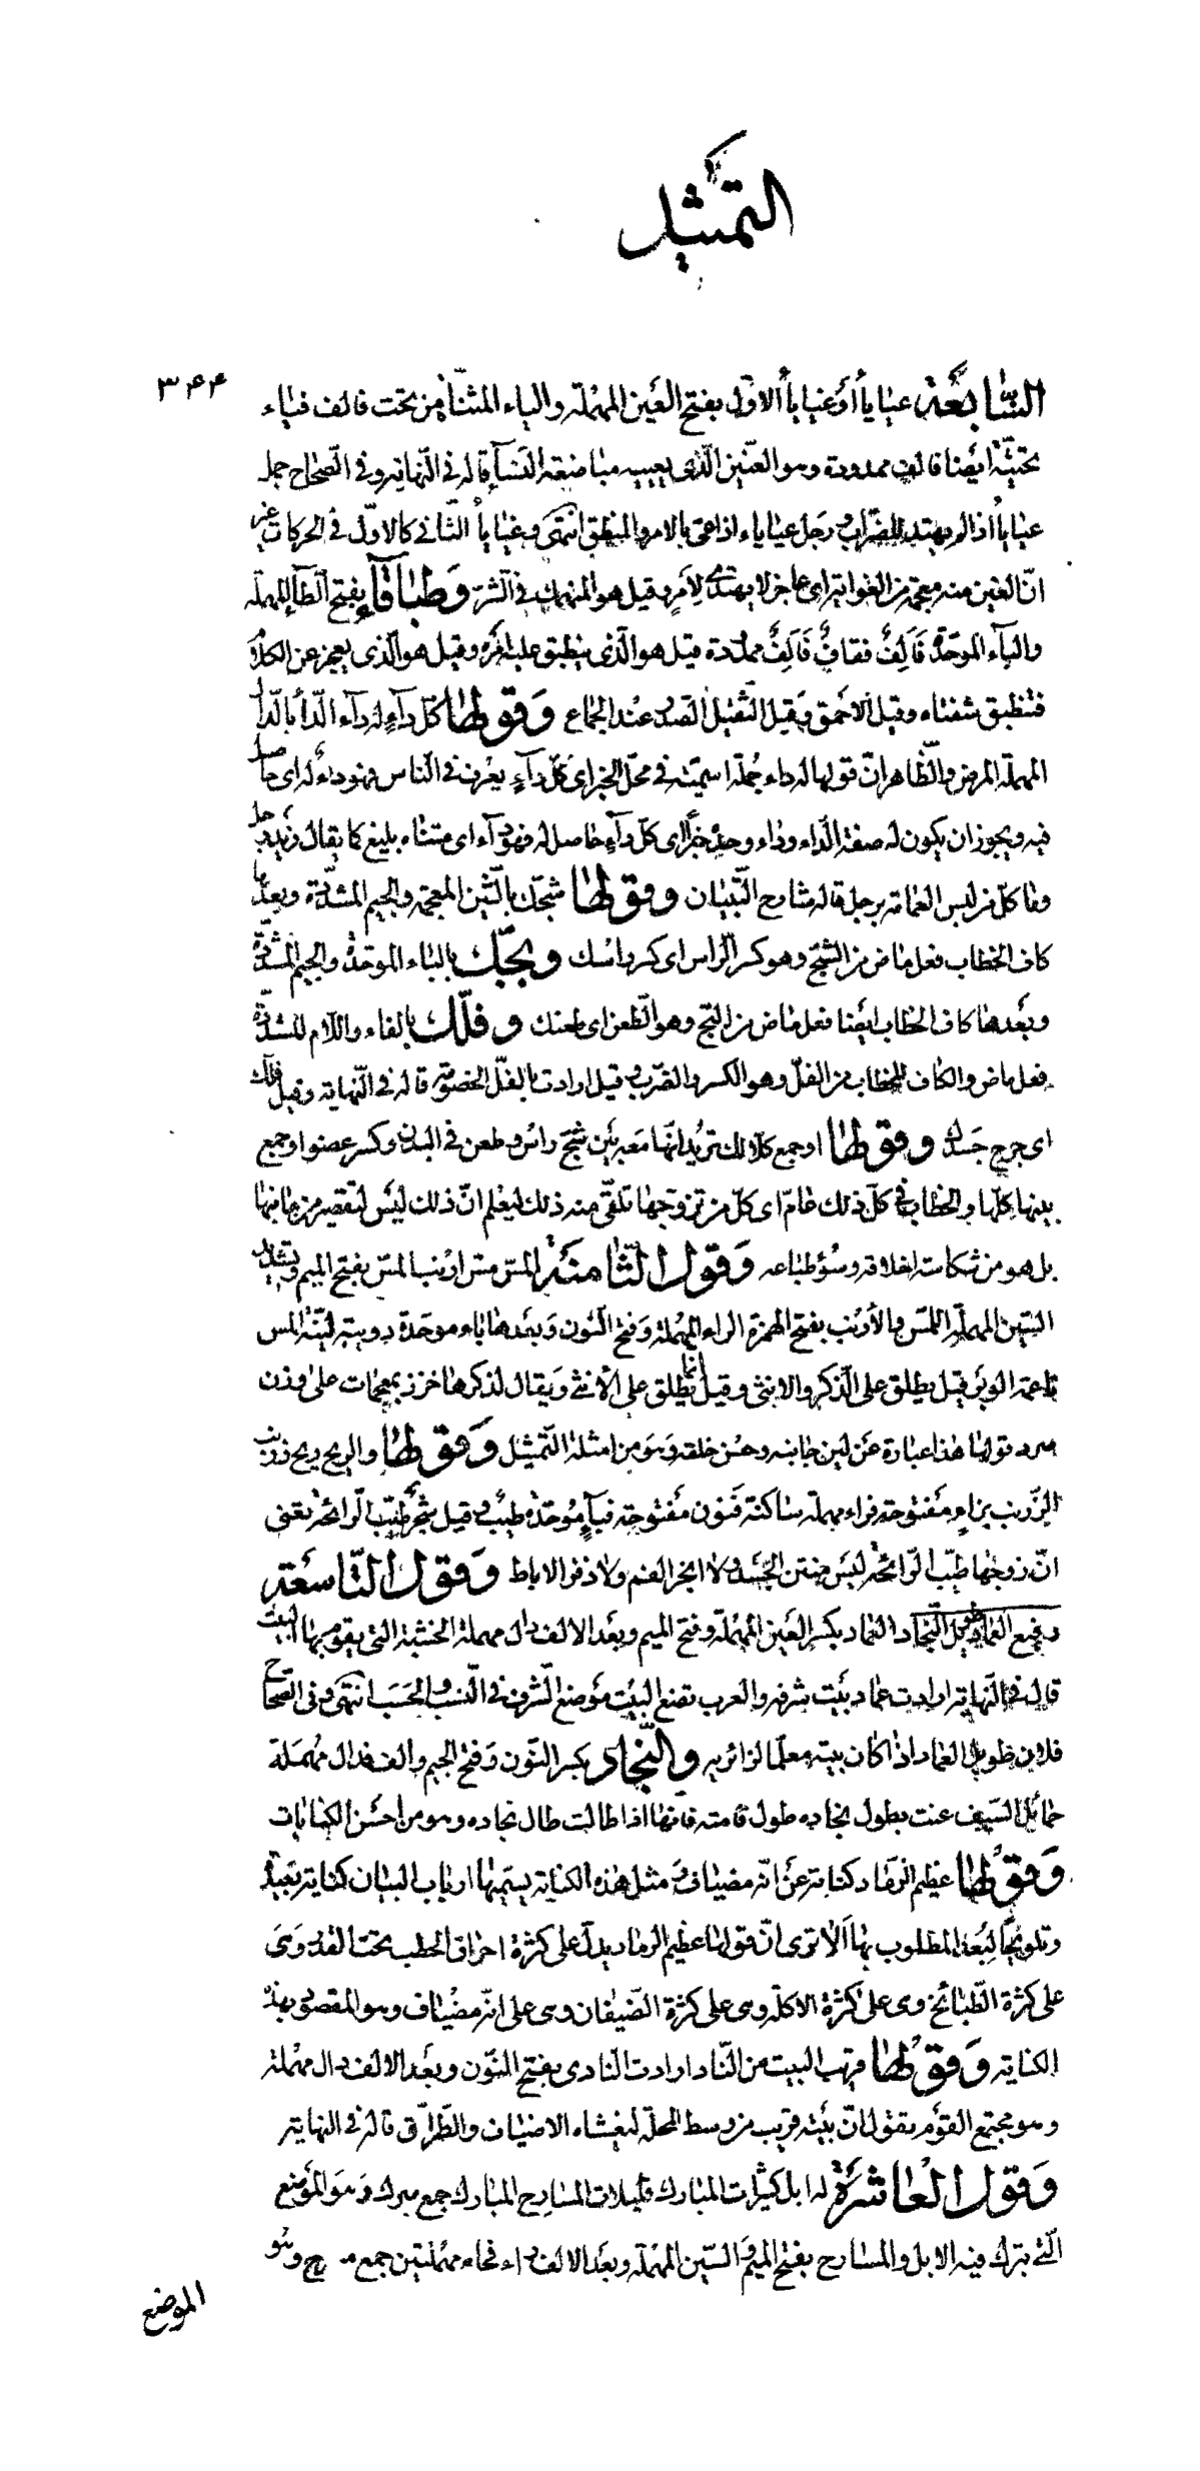 التمثيل
٣٤٤
السّابعة عياياأ أو غياياأ الاوّل بفتح العين المهملة والياء المثنّاة من تحت فالف فياء
تحتيّة ايضا فالف ممدودة وهو العنّين الّذى يعييه مباضعة النسآء قاله فى النّهاية وفى الصّحاح جمل
عياياأ اذا لم يهتد للضّراب ورجل عياياء اذا عىّ بالامر والمنطق انتهى وغياياأ الثّانى كالاوّل فى الحركات غير
انّ الغين منه معجمة من الغواية اى عاجز لا يهتدى لامر وقيل هو المنهمك فى الشّر وَطباقآء بفتح الطّاء المهملة
والبآء الموحّدة فَالِفٌ فقافٌ فَالِفٌ ممدودة قيل هو الّذى ينطبق عليه امره وقيل هو الّذى يعجز عن الكلام
فتنطبق شفتاه وقيل الاحمق وقيل الثّقيل الصّدر عند الجماع وَقولها كلّ دآءٍ له دآء الدّاأ بالدّال
المهملة المرض والظّاهر انّ قولها له داء جُملة اسميّة فى محلّ الخبر اى كلّ دآءٍ يعرف فى النّاس فهو داءٌ له اى حاصل
فيه ويجوز ان يكون له صفة الدّاء وداء وحده خبرًا اى كلّ دآءٍ حاصل له فهو دآء اى متناه بليغ كما يقال زيد رجل
وما كلّ من لبس العمامة برجل قاله شارح التّبيان وقولها شجّك بالشّين المعجمة والجيم المشدّدة وبعدها
كاف الخطاب فعل ماض من الشّجّ وهو كسر الرّاس اى كسر راسك وبجّك بالباء الموحّدة والجيم المشدّدة
وبَعدها كاف الخطاب ايضا فعل ماض من البجّ وهو الطّعن اى طعنك وفلّك بالفاء واللّام المشدّدة
فعل ماض والكاف للخطاب من الفلّ وهو الكسر والضّرب وقيل ارادت بالفلّ الخصومة قاله فى النّهاية وقيل فلّك
اى جرح جسدك وقولها او جمع كلّا لك تريد انّها معه بين شجّ رأس وطعن فى البدن وكسر عضو او جمع
بينها كلّها والخطاب فى كلّ ذلك عامّ اى كلّ من تزوّجها تلقّى منه ذلك ليعلم انّ ذلك ليس لتقصير منها
بل هو من شكاسة اخلاقه وسُوء طباعه وَقول الثّامنة المسّ مسّ ارنب المسّ بفتح الميم وتشديد
السّين المهملة اللّمس والأرنب بفتح الهمزة الراء المهملة وَفتح النّون وَبعدها باء موحّدة دويبة ليّنة المس
ناعمة الوبر قيل يطلق على الذّكر والانثى وقيل انّما يطلق على الأنثى وَيقال لذكرها خرز بمعجمات على وزن
صرد قولها هذا عبارة عن لين جانبه وحسن خلقه وَهو من امثلة التّمثيل وَقولها والريح ريح زرنب
الزّرنب بزاءٍ مفتوحة فراء مهملة ساكنة فنون مَفتوحة فبآءٍ مُوحّدة طيبٌ وقيل شجر طيّب الرّائحة تعنى
انّ زوجها طيّب الرّائحة ليس منتن الجسد ولا ابخر الفم ولا ذفر الاباط وَقول التّاسعة
رفيع العماد طويل النّجاد العماد بكسر العين المهملة وفتح الميم وبعد الالف دال مهملة الخشبة التى يقوم بها البيت
قال فى النّهاية ارادت عماد بيت شرفه والعرب تضع البيت مَوضع الشّرف فى النّسب والحسَب انتهى وفى الصّحاح
فلان طويل العماد اذا كان بيته معلّما لزائريه والنّجاد بكسر النّون وَفتح الجيم والف فدال مُهمَلة
حمائل السّيف عنت بطول نجاده طول قامته فانّها اذا طالت طال نجاده وهو من احسن الكنايات
وَقولها عظيم الرّماد كناية عن انّه مضياف ومثل هذه الكناية يسمّيها ارباب البيان كناية بعيدة
وتلويحًا لبُعد المطلوب بها اَلا ترى انّ قولها عظيم الرماد يدلّ على كثرة احراق الحطب تحت القدر وَهى
على كثرة الطّبائخ وهى على كثرة الاكلة وهى على كثرة الضّيفان وهى على انّه مضياف وهو المقصود بهذه
الكناية وَقولها قريب البيت من النّاد ارادت النّادى بفتح النّون وبعد الالف دال مهملة
وهو مجتمع القوم تقول انّ بيته قريب من وسط المحلّة ليغشاه الاضياف والطّرّاق قاله فى النهاية
وَقول الْعاشرَة له ابل كثيرات المبارك قليلات المسارح المبارك جمع مبرك وَهو المَوضع
الّذى تبرك فيه الابل والمسارح بفتح الميم وَالسّين المهملة وبعد الالف راء فحاء مهملتين جمع مسرح وهو
الموضع